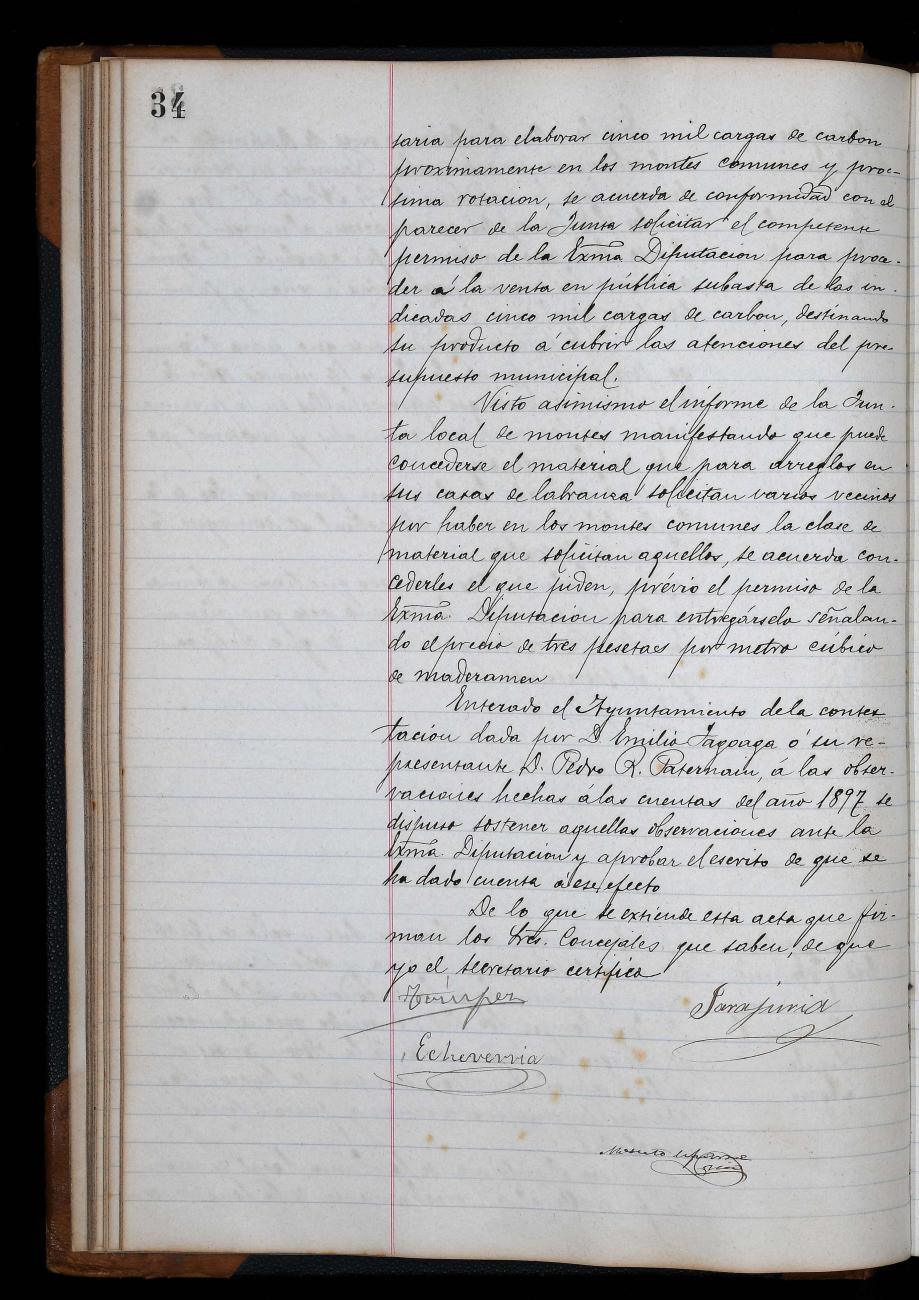 34
saria para elaborar cinco mil cargas de carbon
proximamente en los montes comunes y proc-
sima rotacion, se acuerda de conformidad con el
parecer de la Junta solicitar el competente
permiso de la Exma Diputacion para proce-
der á la venta en pública subasta de las in-
dicadas cinco mil cargas de carbon, destinando
su producto á cubrir las atenciones del pre-
supuesto municipal.
Visto asimismo el informe de la Jun-
ta local de montes manifestando que puede
concederse el material que para arreglos en
sus casas de labranza solicitan varios vecinos
por haber en los montes comunes la clase de
material que solicitan aquellos, se acuerda con-
cederles el que piden, prévio el permiso de la
Exma. Diputacion para entregárselo señalan-
do el precio de tres pesetas por metro cúbico
de maderamen
Enterado el Ayuntamiento de la contes
tacion dada por D Emilio Tagoaga ó su re-
presentante D. Pedro R. Paternain, á las obser-
vaciones hechas á las cuentas del año 1897 se
dispuso sostener aquellas observaciones ante la
Exma. Diputacion y aprobar el escrito de que se
ha dado cuenta a ese efecto
De lo que se extiende esta acta que fir-
man los Sres. Concejales que saben, de que
yo el secretario certifico
Echeverria